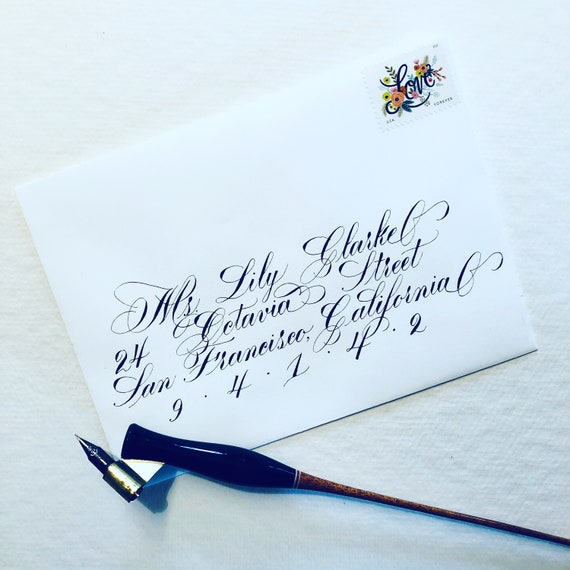 Love
USA FOREVER
Ms. Lily Clarke
24 Octavia Street
San Francisco, California
9 · 4 · 1 · 4 · 2